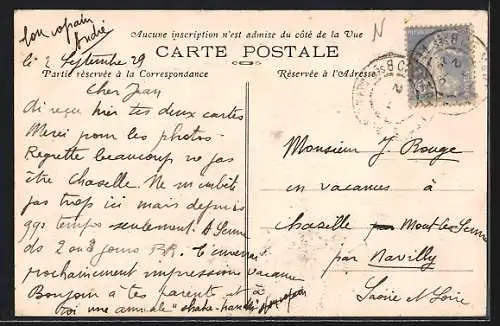 ton copain
André
le 2 Septembre 29
Aucune inscription n'est admise du côté de la Vue
CARTE POSTALE
Partie réservée à la Correspondance
Réservée à l'Adresse
N
Cher Jean
ai reçu hier tes deux cartes
Merci pour les photos -
Regrette beaucoup ne pas
être Chaselle. Ne m'embête
pas trop ici mais depuis
qqs temps seulement. A Semur
ds 2 ou 3 jours
prochainement impressions vacance
Bonjour à tes parents et à
toi une amicale "shake-hand"
Monsieur J. Rouge
en vacances à
Chaselle par Mont-les-Seurre
par Navilly
Saône et Loire